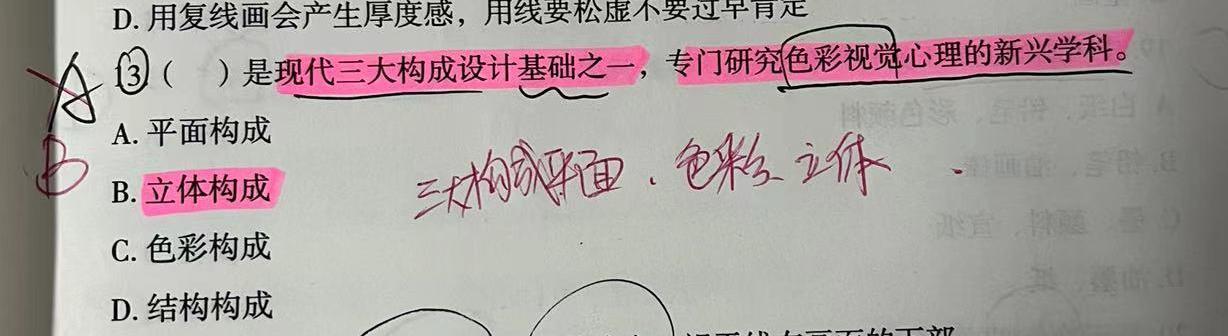 D. 用复线画会产生厚度感，用线要松虚不要过早肯定
A 13（ ）是现代三大构成设计基础之一，专门研究色彩视觉心理的新兴学科。
A. 平面构成
B
B. 立体构成
三大构成平面、色彩、立体
C. 色彩构成
D. 结构构成